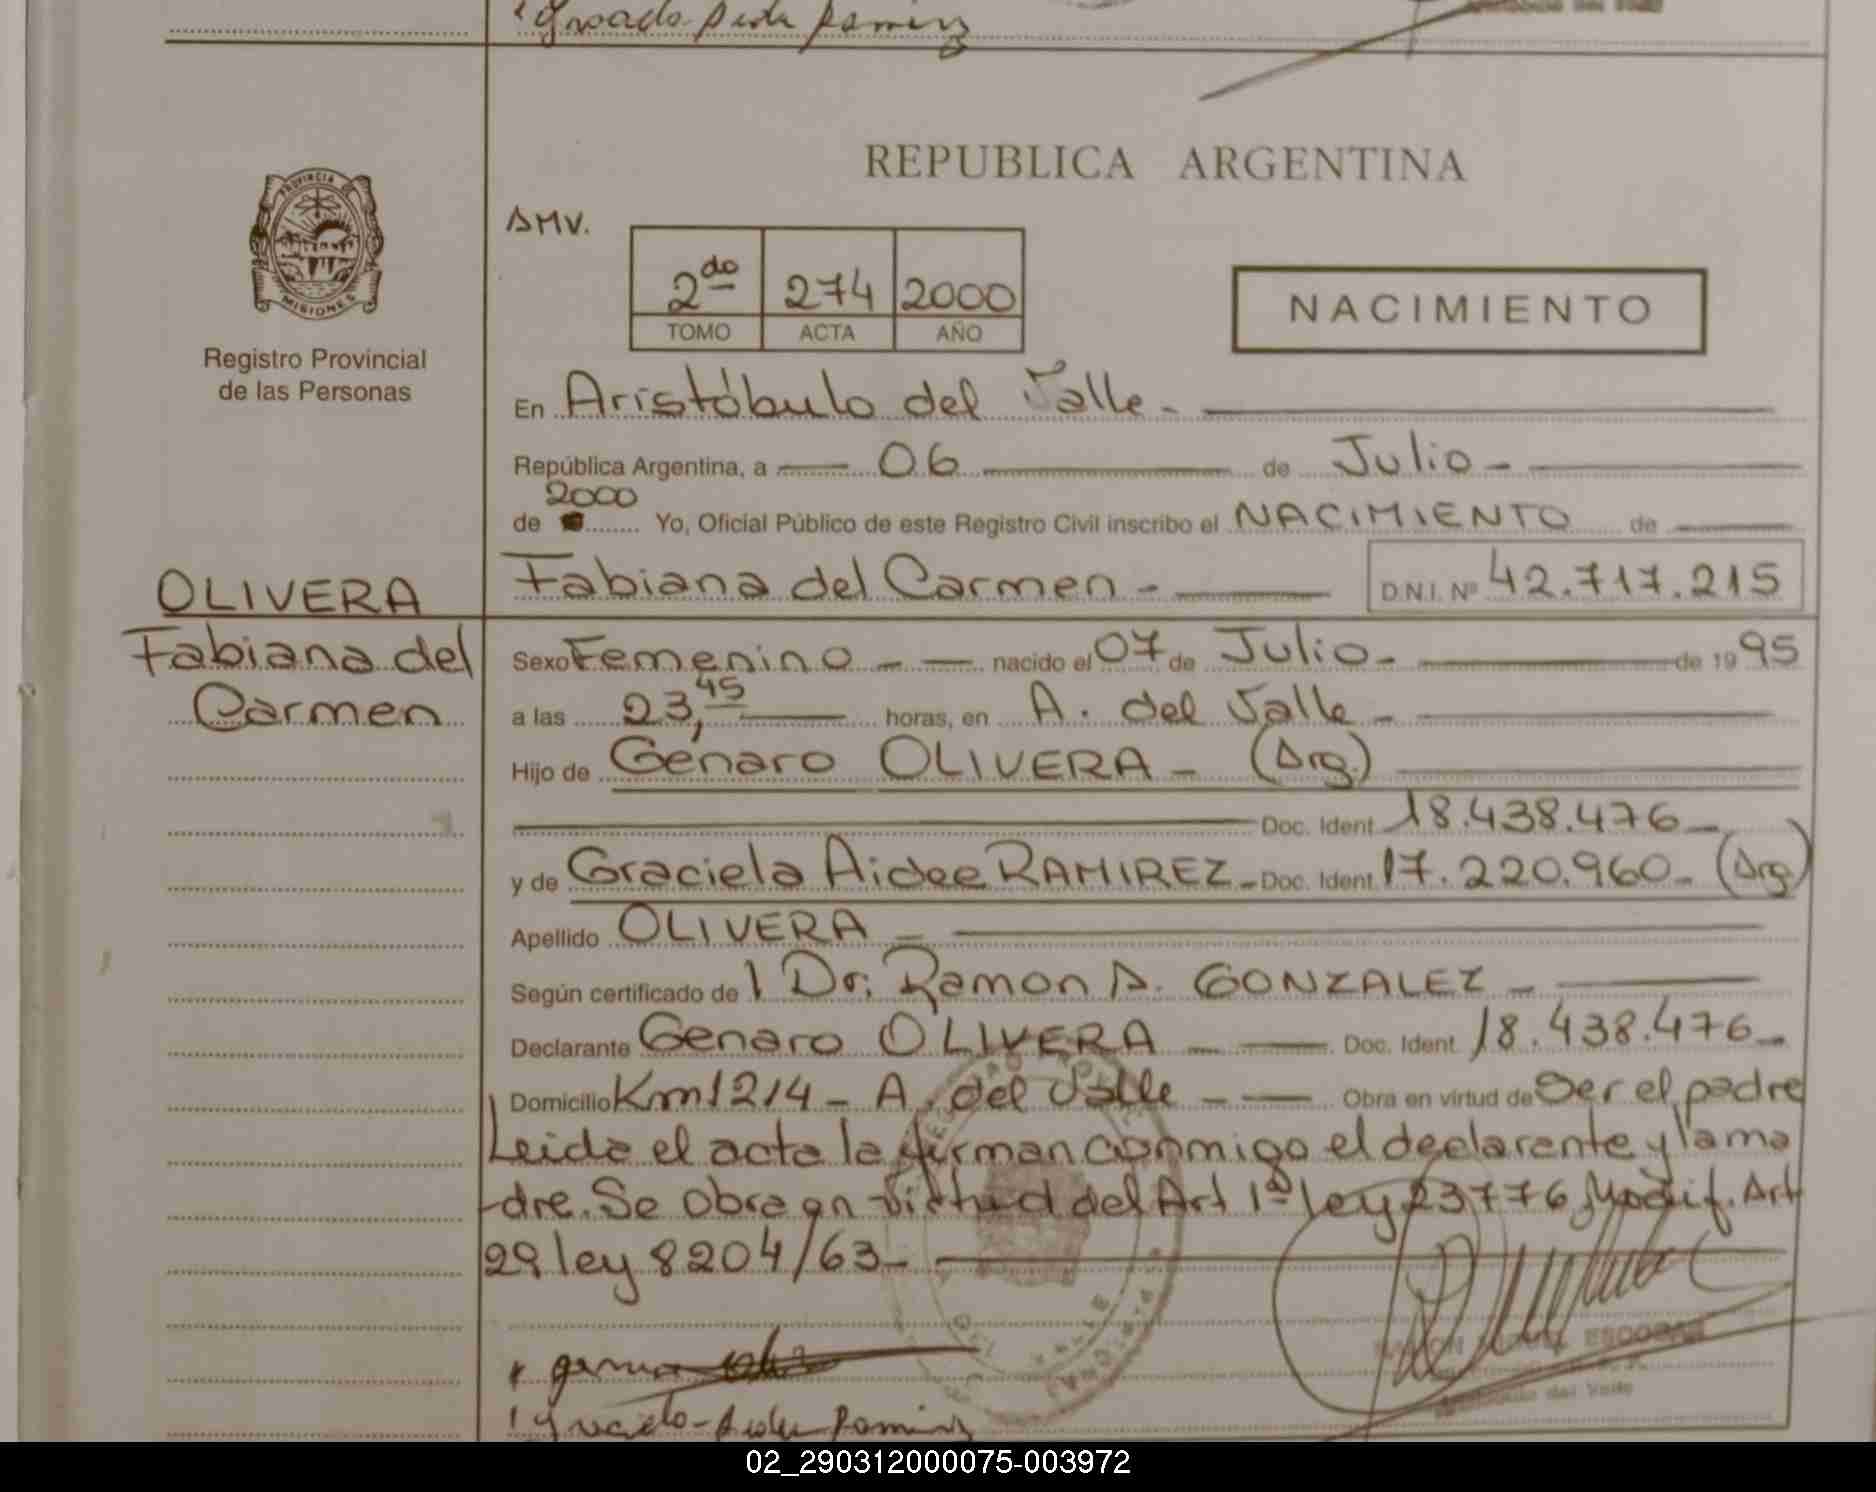 REPUBLICA ARGENTINA
PROVINCIA
MISIONES
Registro Provincial
de las Personas
AMV.
2do 274 2000
TOMO ACTA AÑO
NACIMIENTO
En Aristóbulo del Valle -
República Argentina, a 06 de Julio -
2000
de Yo, Oficial Público de este Registro Civil inscribo el NACIMIENTO de
OLIVERA
Fabiana del
Carmen
Fabiana del Carmen - D.N.I. Nº 42.717.215
Sexo Femenino - nacido el 07 de Julio - de 1995
a las 23,45 horas, en A. del Valle -
Hijo de Genaro OLIVERA - (Arg.)
Doc. Ident. 18.438.476 -
y de Graciela Aidee RAMIREZ - Doc. Ident. 17.220.960 - (Arg)
Apellido OLIVERA -
Según certificado de 1 Dr. Ramon A. GONZALEZ -
Declarante Genaro OLIVERA - Doc. Ident. 18.438.476 -
Domicilio Km 1214 - A. del Valle - Obra en virtud de Ser el padre
Leida el acta la firman conmigo el declarante y la ma
-dre. Se obra en virtud del Art 1º ley 23776 Modif. Art
29 ley 8204/63 -
ESCOBAR
del Valle
02_290312000075-003972